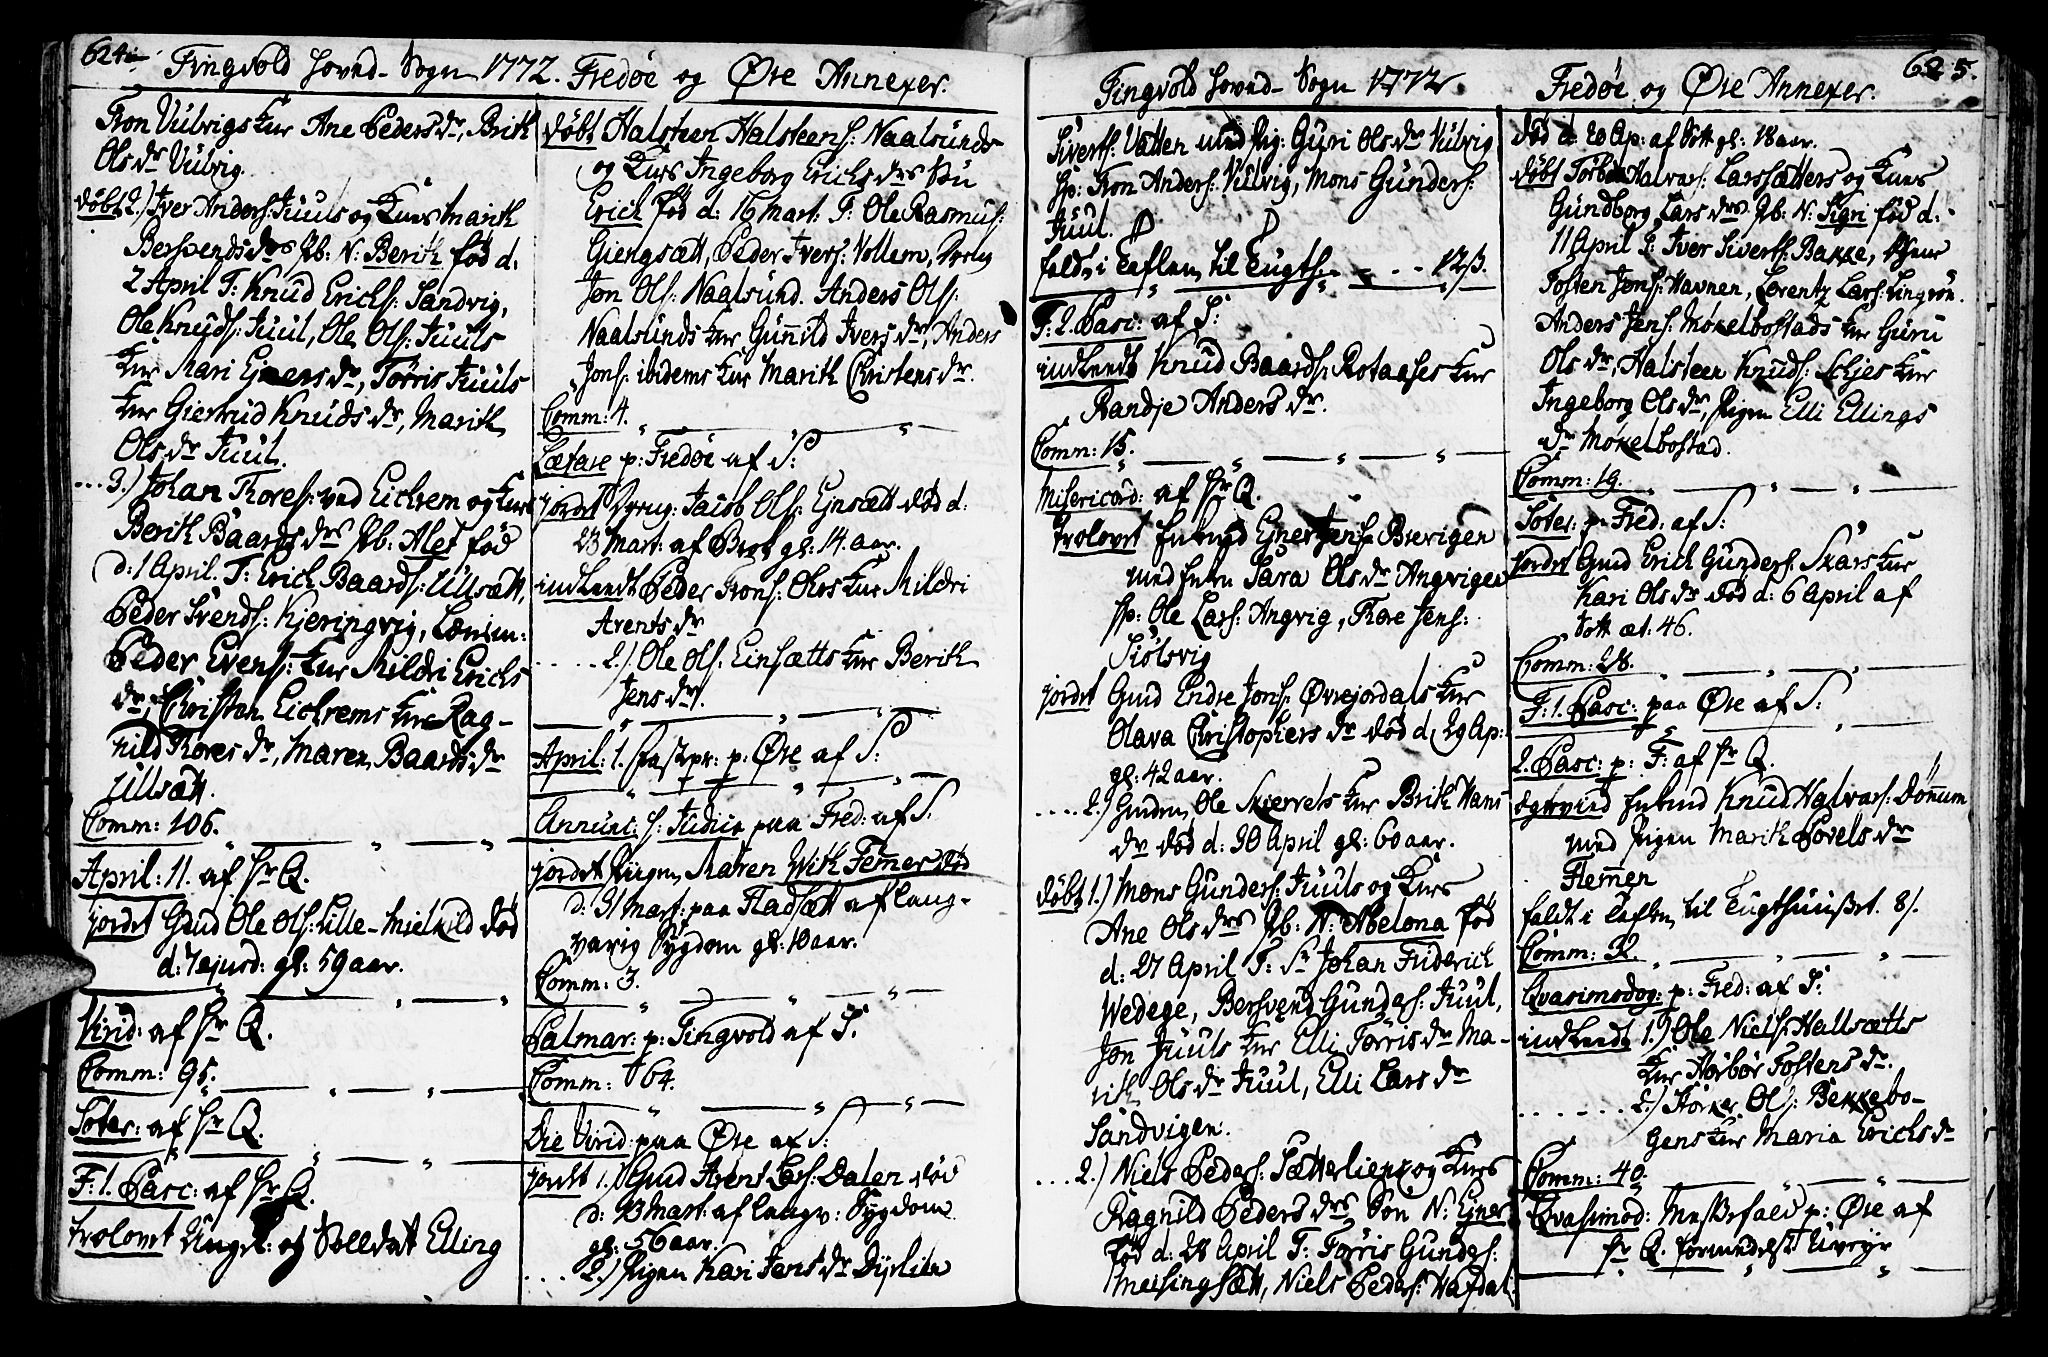 624.
Tingvold Hoved-Sogn 1772. Fredøe og Øre Annexer.
Tron Vulvigs Kur Ane Pedersdr, Brith
Olsdr Vulvig.
døbt 2.) Iver Anders: Juuls og Kurs Marith
Berspendsdrs Pb: N: Berith fød d:
2 April T: Knud Erichs: Sandvig,
Ole Knuds: Juul, Ole Ols: Juuls
Kur Mari Ejnersdr, Törris Juuls
Kur Giertrud Knudsdr, Marith
Olsdr Juul.
3.) Johan Thores: ved Eichrem og Kurs
Berith Baardsdrs Pb: Alet fød
d: 1 April. T: Erich Baards: Ullsætt,
Peder Svends: Kjeringvig,
Peder Evens: Kur Mildri Erichs
dr, Christen Eichrems Kur Rag-
nild Thoresdr, Maren Baardsdr
Ullsætt.
Comm: 106.
April: 11. af Hr Q.
jordet Gmd Ole Ols: Lille-Mielkild død
d: 7 ejusd: gl: 59 aar.
Virid: af Hr Q.
Comm: 95.
Soter: af Hr Q.
F: 1. Pasc: af Hr Q.
trolovet Ungk: og Solldat Elling
døbt Halsteen Halsteens: Naalsunds
og Kurs Ingeborg Erichsdrs Sön
Erich fød d: 16 Mart: T: Ole Rasmus:
Giengsætt, Peder Ivers: Vollem,
Jon Ols: Naalsund. Anders Ols:
Naalsunds Kur Gunnild Iversdr, Anders
Jons: ibidems Kur Marith Christensdr.
Comm: 4.
Lætare p: Fredøe af S:
jordet Jacob Ols: Ejnsætt død d:
23 Mart: af Brot gl: 14 aar.
indledt Peder Trons: Kur Mildri
Arentsdr
2.) Ole Ols: Einsætts Kur Berith
Jensdr.
April: 1. Fastepr: p: Øre af S:
Annunc: s: Judica paa Fred: af S.
jordet Piigen Maren With Femer død
d: 31 Mart: paa Fladsætt af lang-
varig Sygdom gl: 18 aar.
Comm: 3.
Palmar: p: Tingvold af S.
Comm: 164.
Die Virid: paa Øre af S:
jordet 1.) Gmd Arent Lars: Dalen død
d: 23 Mart: af langv: Sygdom
gl: 56 aar.
2.) Pigen Kari Jensdr
625.
Tingvold Hoved-Sogn 1772. Fredøe og Øre Annexer.
Siverts: Vatten med Pig: Guri Olsdr Vulvig
Sp: Tron Anders: Vulvig, Mons Gunders:
Juul.
faldt i Taflen til Tugth: - - - 12 ß.
F: 2. Pasc: af S:
indleedt Knud Baards: Rotaases Kur
Randje Andersdr.
Comm: 15.
Misericord: af Hr Q.
trolovet Enkmd Ejner Jens: Brevigen
med Enken Sara Olsdr Angvigen
Sp: Ole Lars: Angvig, Thore Jens:
Siölsvig
jordet Gmd Endre Jons: Øvrejordals Kur
Olava Christophersdr død d: 29 Ap:
gl: 42 aar.
2.) Ole Skierrels Kur Brith Hans
dr død d: 30 April gl: 60 aar.
døbt 1.) Mons Gunders: Juuls og Kurs
Ane Olsdrs Pb: N: Abelona fød
d: 27 April T: Sr Johan Friderich
Wedege, Bersvend Gunders: Juul,
Jon Juuls Kur Elli Törrisdr Ma-
rith Olsdr Juul, Elli Larsdr
Sandvigen.
2.) Niels Peders: Sætterliens og Kurs
Ragnild Pedersdrs Søn N: Ejner
fød d: 28 April T: Törris Gunders:
Meisingsætt, Niels Peders: Hafdal
død d: 20 Ap: af Sott gl: 18 aar.
døbt Halvars: Larssætters og Kurs
Gundborg Larsdrs Pb: N: Sigri fød d:
11 April T: Iver Siverts: Bakke,
Tosten Jons: Havnen, Lorentz Lars:
Anders Jens: Møkelbostads Kur Guru
Olsdr, Halsteen Knuds: Schjes Kur
Ingeborg Olsdr, Pigen Elli Ellings
dr Møkelbostad.
Comm: 19.
Soter: p: Fred: af S:
jordet Gmd Erich Gunders: Skars Kur
Kari Olsdr død d: 6 April af
Sott æt: 46.
Comm: 28.
F: 1. Pasc: paa Øre af S:
2. Pasc: p: F: af Hr Q.
Enkmd Knud Halvars: Dönnum
med Pigen Marith Povelsdr
Flemmen
faldt i Taflen til Tugthuuset. 8 ß.
Comm: 32.
Qvasimodog: p: Fred: af S:
indleedt 1.) Ole Niels: Hallsætts
Kur Storbör Tostensdr.
2.) Størker Ols: Bekkebo-
gens Kur Maria Erichsdr
Comm: 40.
Qvasimod: Messefald p: Øre af
Hr Q. formedelst Uveyr